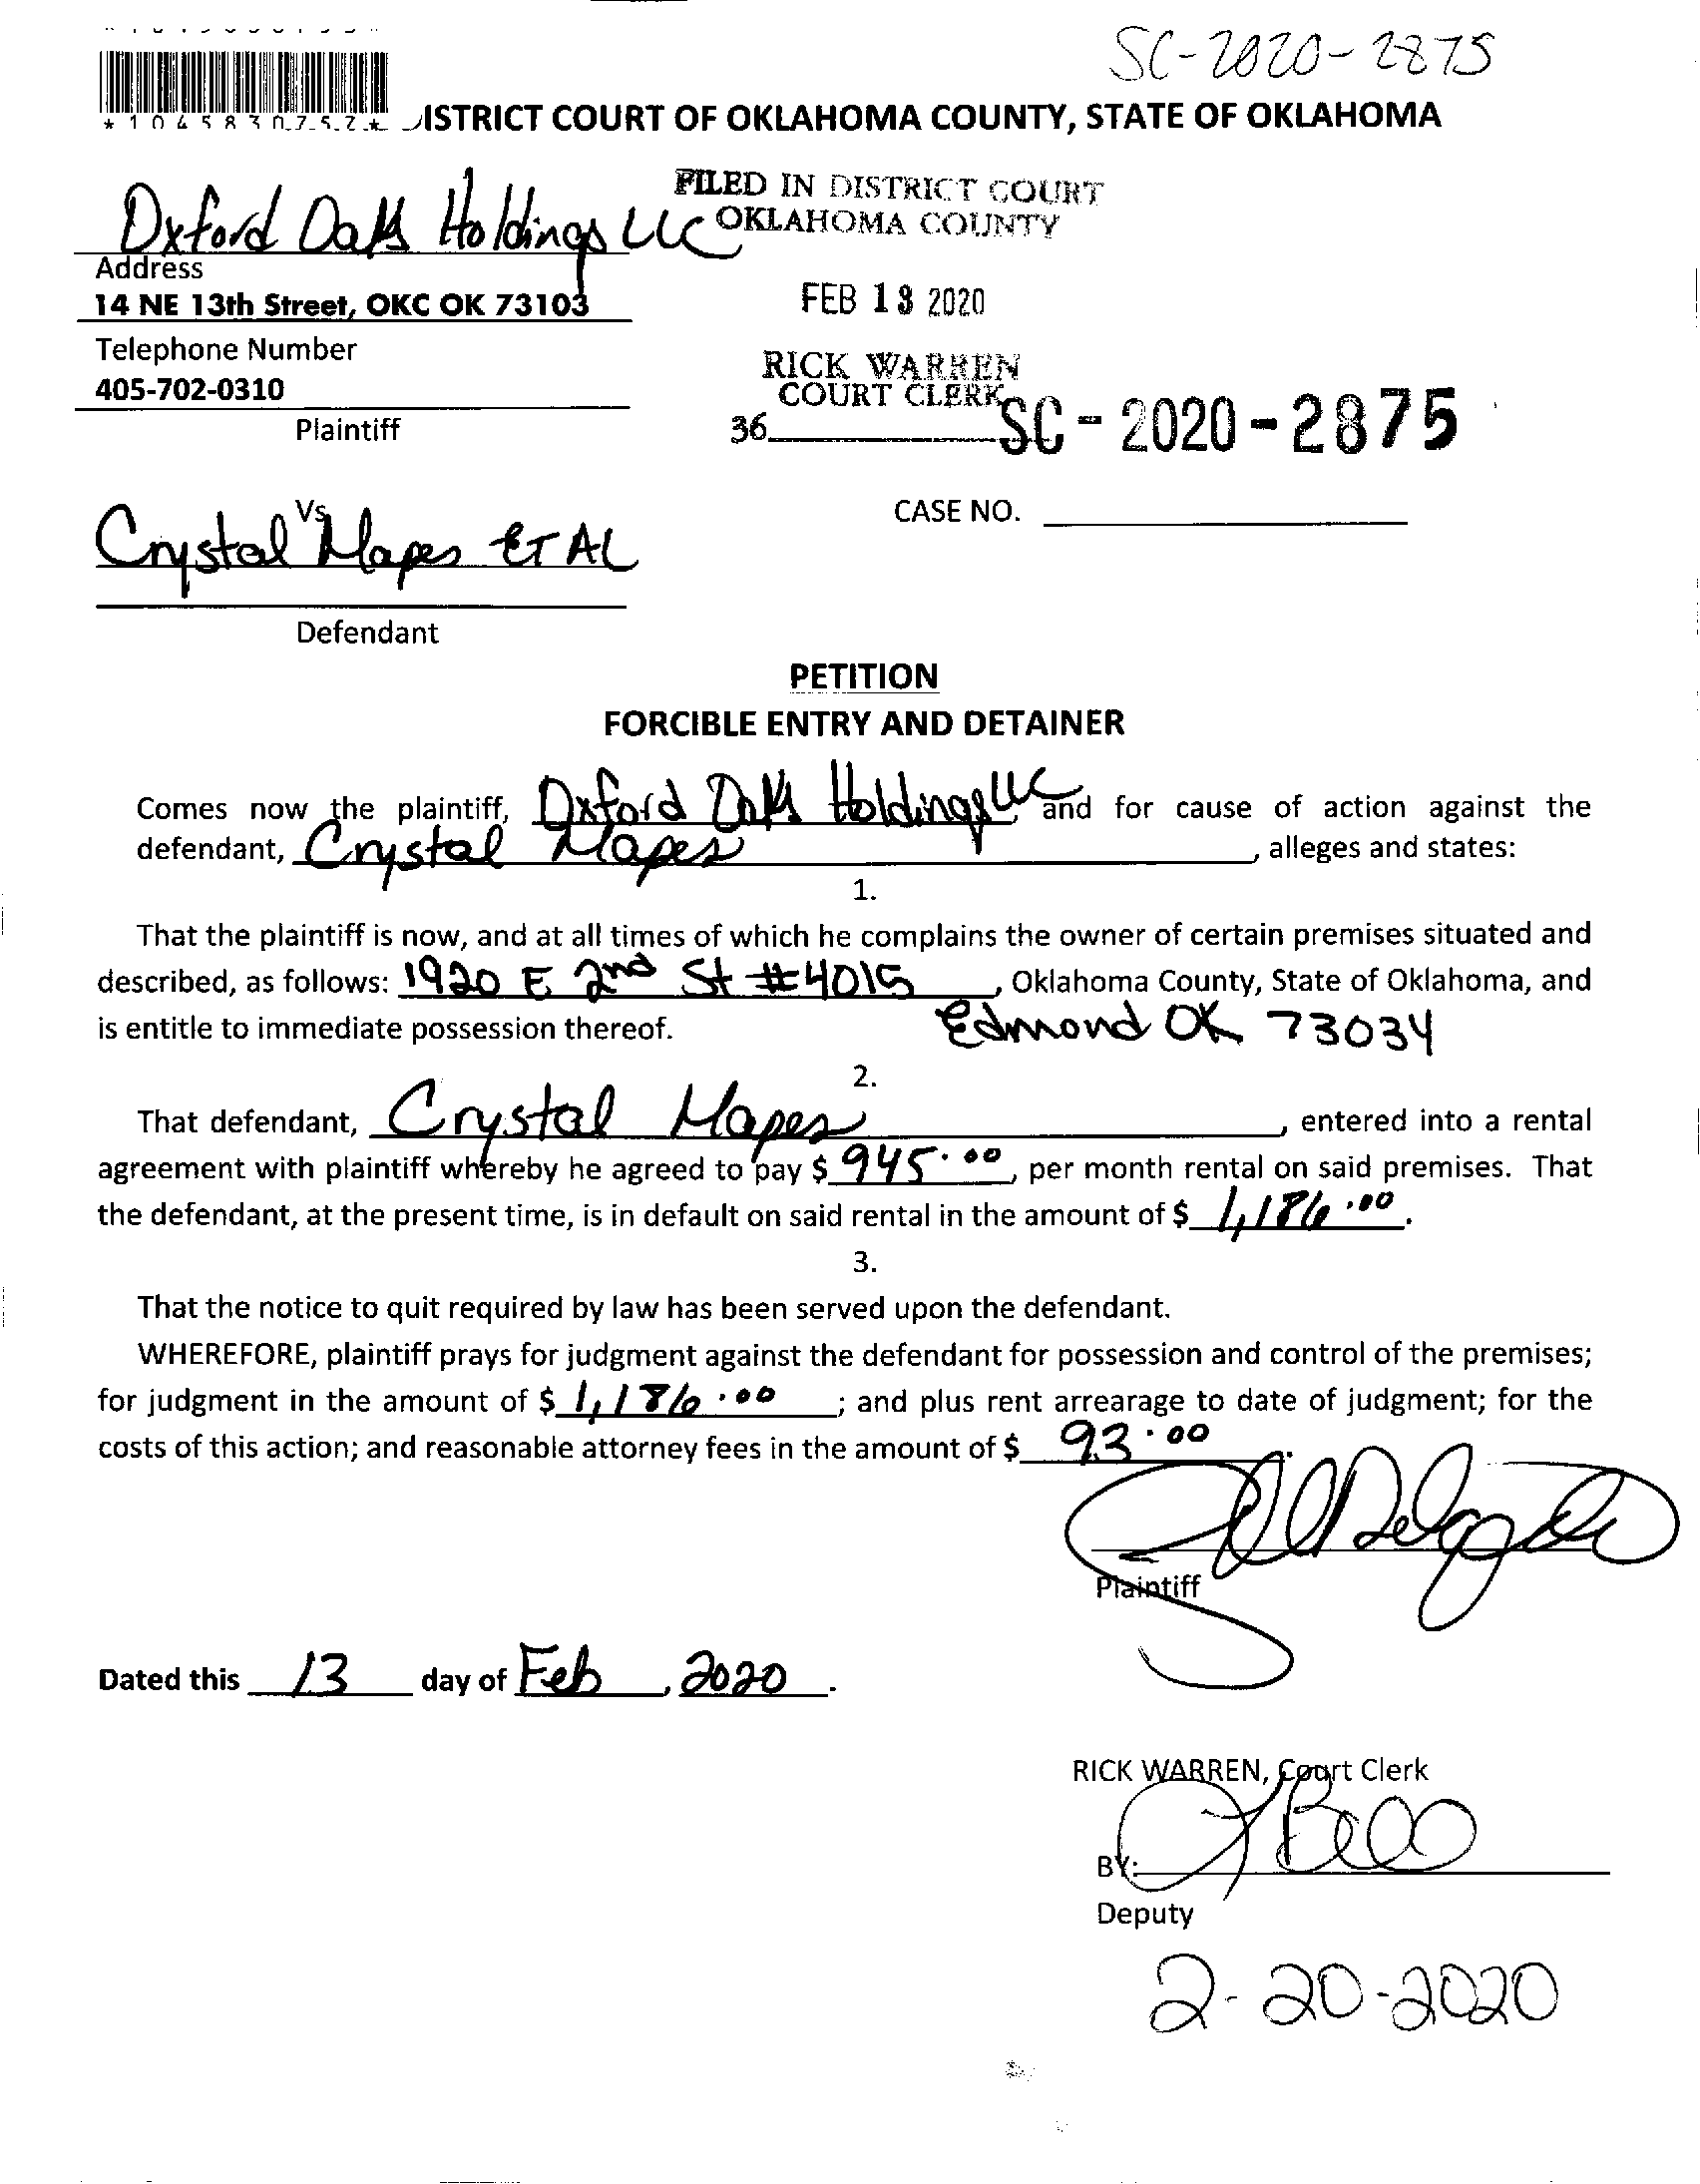 SC-2020-2875
*1045830757*
ISTRICT COURT OF OKLAHOMA COUNTY, STATE OF OKLAHOMA
FILED IN DISTRICT COURT
Oxford Oaks Holdings LLC OKLAHOMA COUNTY
Address
14 NE 13th Street, OKC OK 73103
FEB 13 2020
Telephone Number
RICK WARREN
405-702-0310
COURT CLERK
Plaintiff
36 SC-2020-2875
Vs
CASE NO.
Crystal Mapes ET AL
Defendant
PETITION
FORCIBLE ENTRY AND DETAINER
Comes now the plaintiff, Oxford Oaks Holdings LLC, and for cause of action against the
defendant, Crystal Mapes, alleges and states:
1.
That the plaintiff is now, and at all times of which he complains the owner of certain premises situated and
described, as follows: 1920 E 2nd St #4015, Oklahoma County, State of Oklahoma, and
is entitle to immediate possession thereof. Edmond OK 73034
2.
That defendant, Crystal Mapes, entered into a rental
agreement with plaintiff whereby he agreed to pay $ 945.00, per month rental on said premises. That
the defendant, at the present time, is in default on said rental in the amount of $ 1,186.00.
3.
That the notice to quit required by law has been served upon the defendant.
WHEREFORE, plaintiff prays for judgment against the defendant for possession and control of the premises;
for judgment in the amount of $ 1,186.00; and plus rent arrearage to date of judgment; for the
costs of this action; and reasonable attorney fees in the amount of $ 93.00.
Plaintiff
Dated this 13 day of Feb, 2020.
RICK WARREN, Court Clerk
BY:
Deputy
2-20-2020